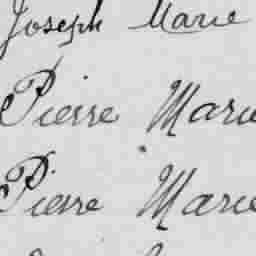 Joseph Marie
Pierre Marie
Pierre Marie